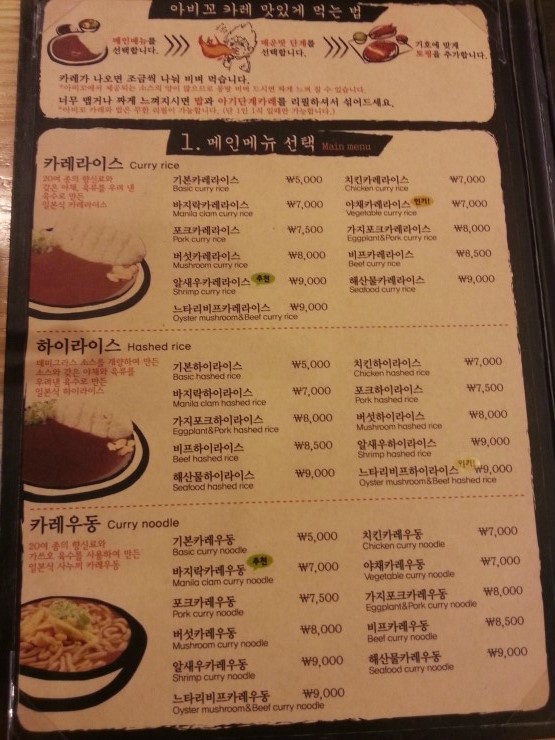 아비꼬 카레 맛있게 먹는 법
메인메뉴를
선택합니다.
매운맛 단계를
선택합니다.
기호에 맞게
토핑을 추가합니다.
카레가 나오면 조금씩 나눠 비벼 먹습니다.
*아비꼬에서 제공되는 소스의 양이 많으므로 몽땅 비벼 드시면 짜게 느껴 질 수 있습니다.
너무 맵거나 짜게 느껴지시면 밥과 아기단계카레를 리필하셔서 섞어드세요.
*아비꼬 카레와 밥은 무한 리필이 가능합니다. (단 1인 1식 일때만 가능합니다.)
1. 메인메뉴 선택 Main menu
카레라이스 Curry rice
20여 종의 향신료와
갖은 야채, 육류를 우려 낸
육수로 만든
일본식 카레라이스
기본카레라이스 ₩5,000
Basic curry rice
바지락카레라이스 ₩7,000
Manila clam curry rice
포크카레라이스 ₩7,500
Pork curry rice
버섯카레라이스 ₩8,000
Mushroom curry rice
알새우카레라이스 추천 ₩9,000
Shrimp curry rice
느타리비프카레라이스 ₩9,000
Oyster mushroom&Beef curry rice
치킨카레라이스 ₩7,000
Chicken curry rice
야채카레라이스 인기! ₩7,000
Vegetable curry rice
가지포크카레라이스 ₩8,000
Eggplant&Pork curry rice
비프카레라이스 ₩8,500
Beef curry rice
해산물카레라이스 ₩9,000
Seafood curry rice
하이라이스 Hashed rice
데미그라스 소스를 개량하여 만든
소스와 갖은 야채와 육류를
우려낸 육수로 만든
일본식 하이라이스
기본하이라이스 ₩5,000
Basic hashed rice
바지락하이라이스 ₩7,000
Manila clam hashed rice
가지포크하이라이스 ₩8,000
Eggplant&Pork hashed rice
비프하이라이스 ₩8,500
Beef hashed rice
해산물하이라이스 ₩9,000
Seafood hashed rice
치킨하이라이스 ₩7,000
Chicken hashed rice
포크하이라이스 ₩7,500
Pork hashed rice
버섯하이라이스 ₩8,000
Mushroom hashed rice
알새우하이라이스 ₩9,000
Shrimp hashed rice
느타리비프하이라이스 인기! ₩9,000
Oyster mushroom&Beef hashed rice
카레우동 Curry noodle
20여 종의 향신료와
가쓰오 육수를 사용하여 만든
일본식 사누끼 카레우동
기본카레우동 ₩5,000
Basic curry noodle
바지락카레우동 추천 ₩7,000
Manila clam curry noodle
포크카레우동 ₩7,500
Pork curry noodle
버섯카레우동 ₩8,000
Mushroom curry noodle
알새우카레우동 ₩9,000
Shrimp curry noodle
느타리비프카레우동 ₩9,000
Oyster mushroom&Beef curry noodle
치킨카레우동 ₩7,000
Chicken curry noodle
야채카레우동 ₩7,000
Vegetable curry noodle
가지포크카레우동 ₩8,000
Eggplant&Pork curry noodle
비프카레우동 ₩8,500
Beef curry noodle
해산물카레우동 ₩9,000
Seafood curry noodle